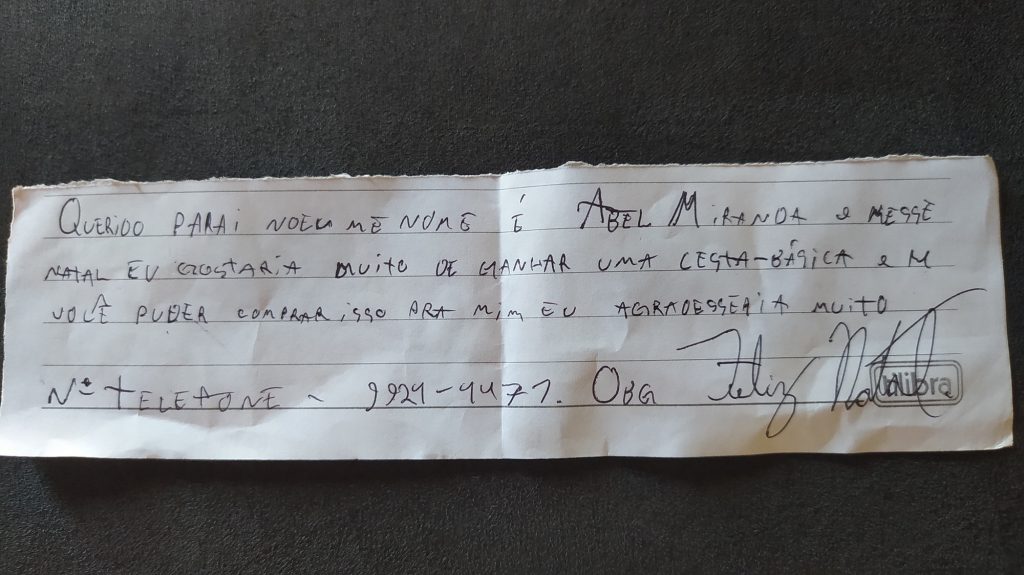 QUERIDO PARAI NOEU ME NOME É ABEL MIRANDA e NESSE
NATAL EU GOSTARIA MUITO DE GANHAR UMA CESTA-BÁSICA e M
VOCÊ PUDER COMPRAR iSSO PRA MIM EU AGRADESSERIA MUITO
Nº TELEFONE ~ 9929-9477. OBG Feliz Natal
tilibra